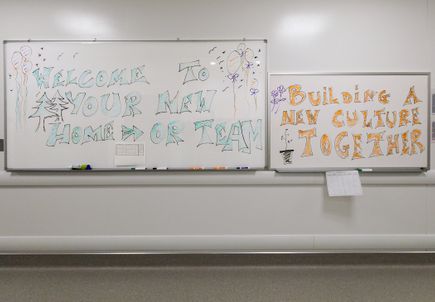 WELCOME TO
YOUR NEW
HOME OR TEAM
BUILDING A
NEW CULTURE
TOGETHER